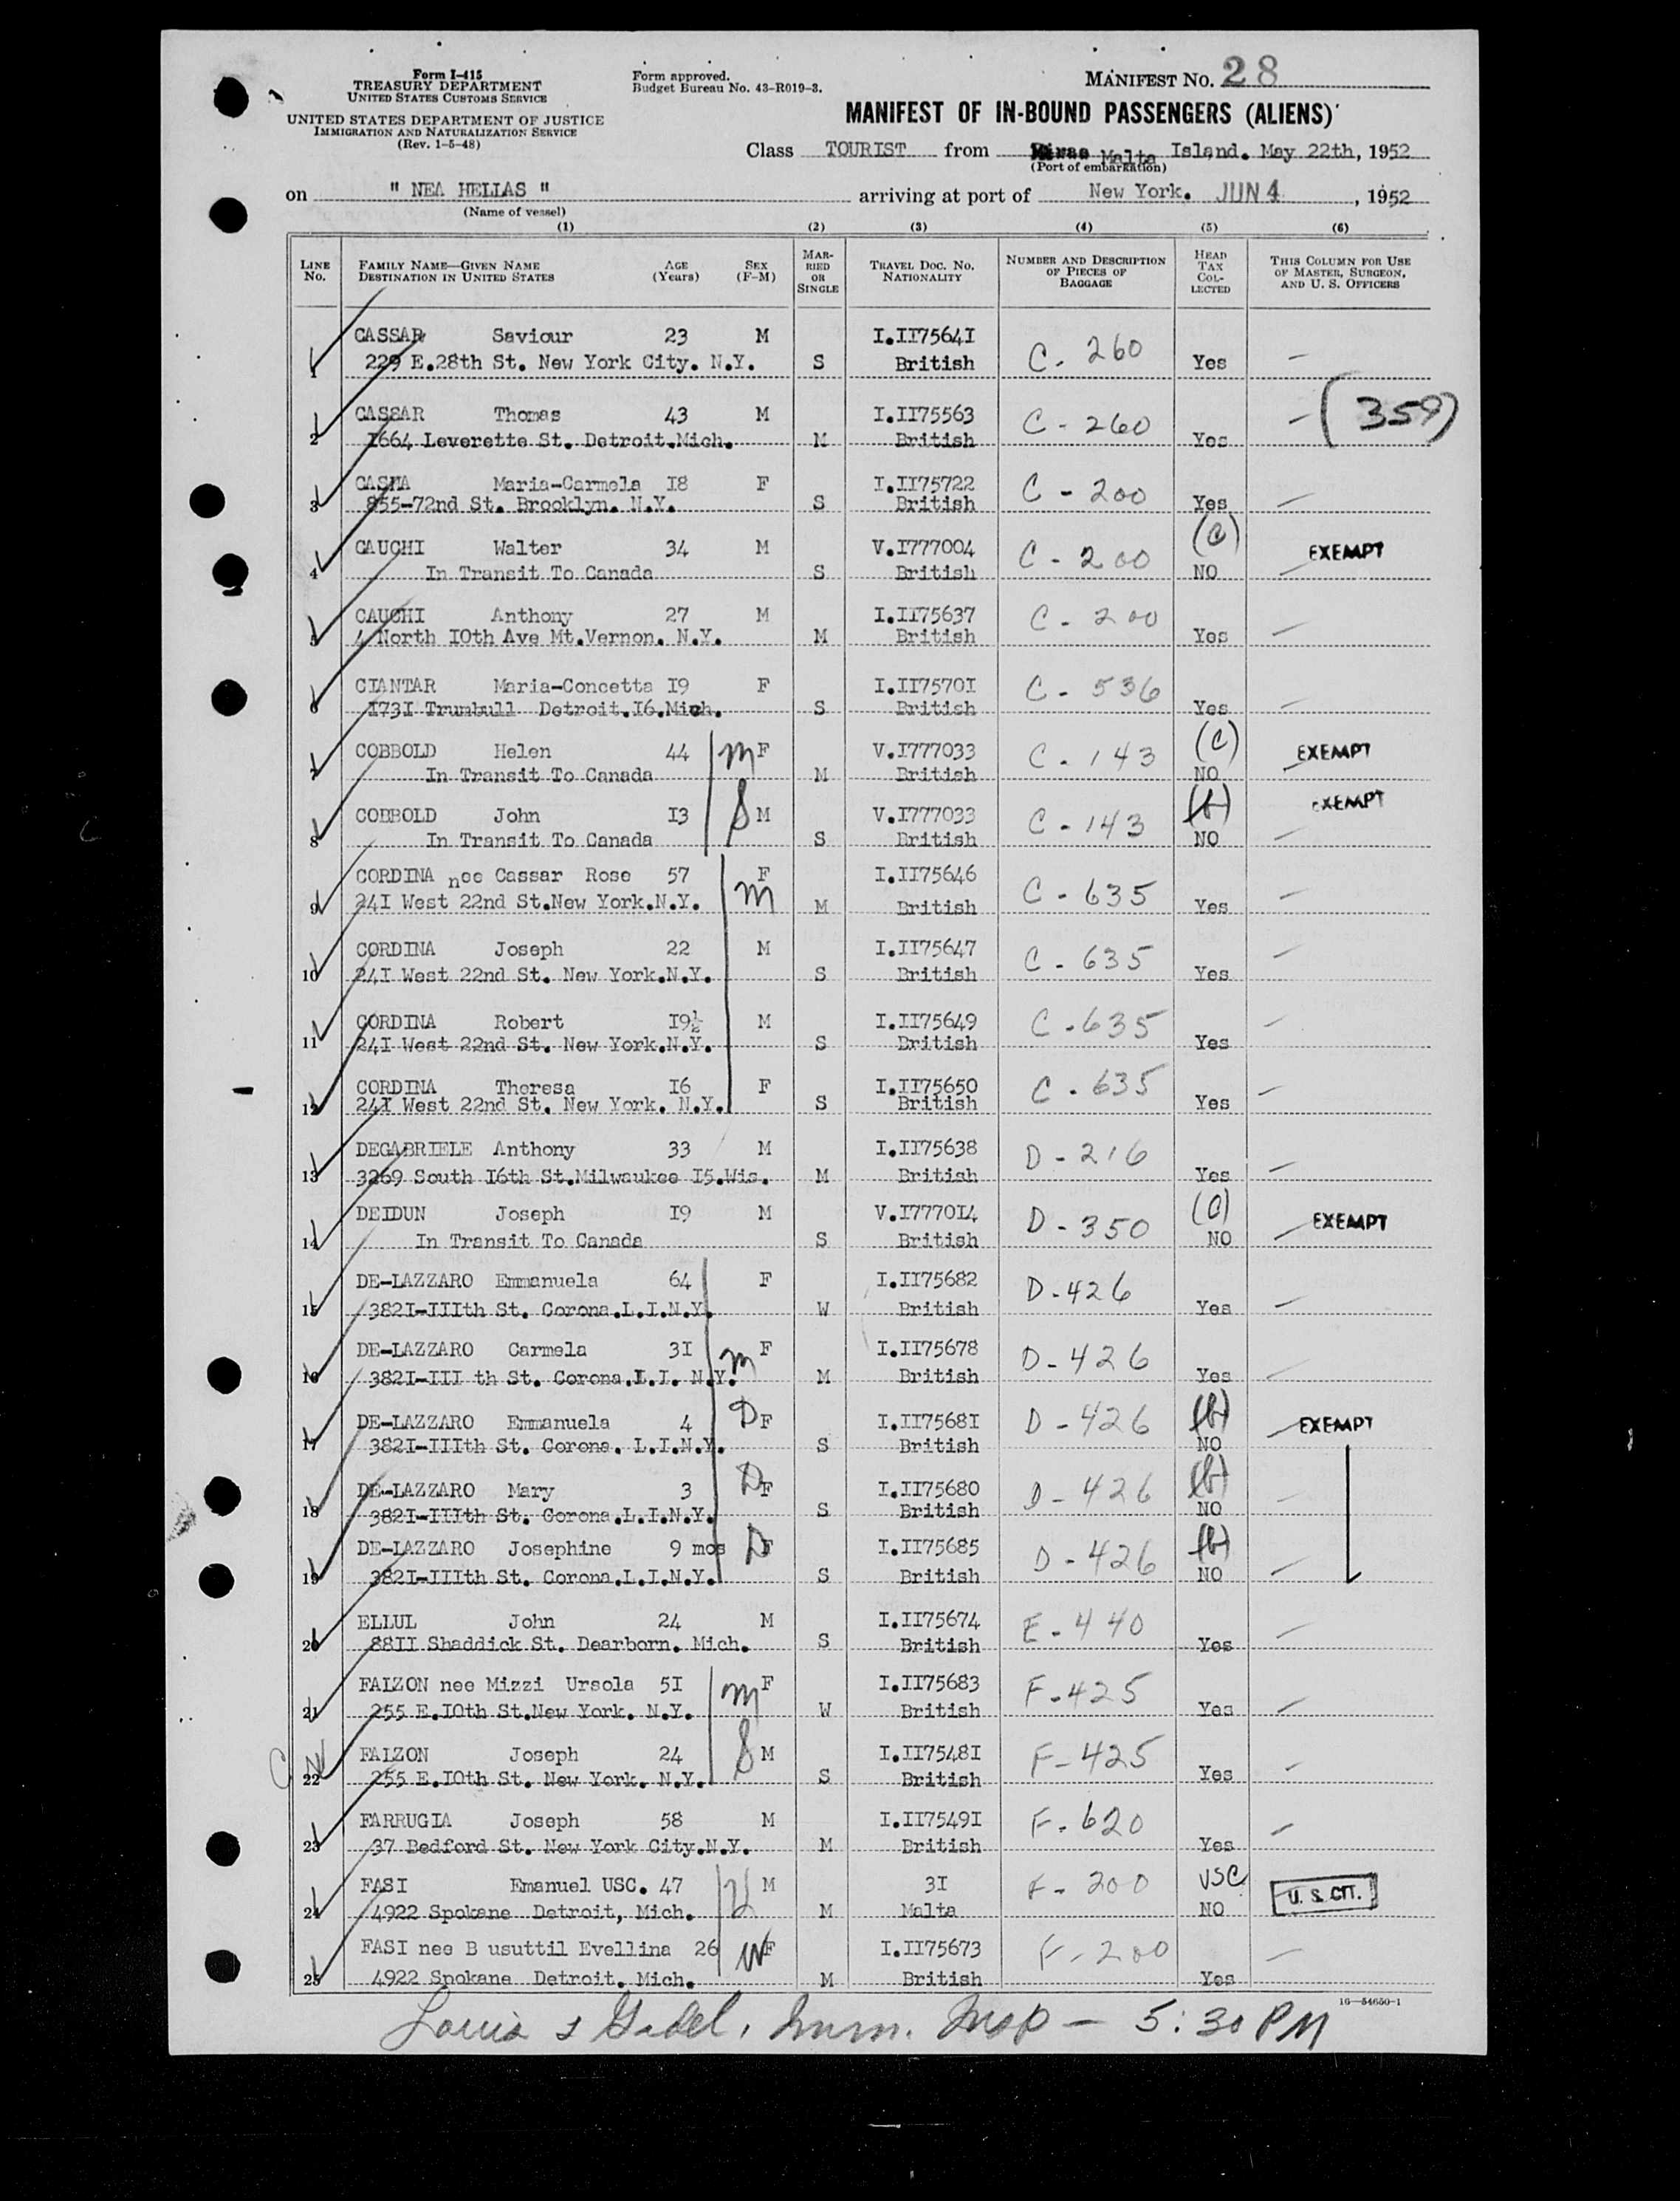 Form I-415
TREASURY DEPARTMENT
UNITED STATES CUSTOMS SERVICE
UNITED STATES DEPARTMENT OF JUSTICE
IMMIGRATION AND NATURALIZATION SERVICE
(Rev. 1-5-48)
Form approved.
Budget Bureau No. 43-R019-3.
MANIFEST NO. 28
MANIFEST OF IN-BOUND PASSENGERS (ALIENS)
Class TOURIST from Malta Island. May 22th, 1952
(Port of embarkation)
on " NEA HELLAS " arriving at port of New York. JUN 4, 1952
(Name of vessel)
(1) (2) (3) (4) (5) (6)
LINE NO. FAMILY NAME—GIVEN NAME DESTINATION IN UNITED STATES AGE (Years) SEX (F-M) MARRIED OR SINGLE TRAVEL DOC. NO. NATIONALITY NUMBER AND DESCRIPTION OF PIECES OF BAGGAGE HEAD TAX COLLECTED THIS COLUMN FOR USE OF MASTER, SURGEON, AND U. S. OFFICERS
CASSAR Saviour 23 M I.II7564I C- 260
1 229 E.28th St. New York City. N.Y. S British Yes —
CASSAR Thomas 43 M I.II75563 C - 260 — (359)
2 I664 Leverette St. Detroit.Mich. M British Yes
CASHA Maria-Carmela I8 F I.II75722 C - 200
3 855-72nd St. Brooklyn. N.Y. S British Yes —
CAUCHI Walter 34 M V.I777004 C - 200 (c) EXEMPT
4 In Transit To Canada S British NO —
CAUCHI Anthony 27 M I.II75637 C - 200
5 4 North I0th Ave Mt.Vernon. N.Y. M British Yes —
CIANTAR Maria-Concetta I9 F I.II7570I C - 536
6 I73I Trumbull Detroit.I6.Mich. S British Yes —
COBBOLD Helen 44 m F V.I777033 C - 143 (c) EXEMPT
7 In Transit To Canada M British NO —
COBBOLD John I3 S M V.I777033 C - 143 (b) EXEMPT
8 In Transit To Canada S British NO —
CORDINA nee Cassar Rose 57 F I.II75646 C - 635
9 24I West 22nd St.New York.N.Y. m M British Yes —
CORDINA Joseph 22 M I.II75647 C - 635 —
10 24I West 22nd St. New York.N.Y. S British Yes
CORDINA Robert I9½ M I.II75649 C - 635 —
11 24I West 22nd St. New York.N.Y. S British Yes
CORDINA Theresa I6 F I.II75650 C - 635 —
12 24I West 22nd St. New York. N.Y. S British Yes
DEGABRIELE Anthony 33 M I.II75638 D - 216
13 3269 South I6th St.Milwaukee I5.Wis. M British Yes —
DEIDUN Joseph I9 M V.I777OI4 D - 350 (c) EXEMPT
14 In Transit To Canada S British NO —
DE-LAZZARO Emmanuela 64 F I.II75682 D - 426
15 382I-IIIth St. Corona.L.I.N.Y. W British Yes —
DE-LAZZARO Carmela 3I m F I.II75678 D - 426
16 382I-III th St. Corona.L.I. N.Y. M British Yes —
DE-LAZZARO Emmanuela 4 D F I.II7568I D - 426 (b) EXEMPT
17 382I-IIIth St. Corona. L.I.N.Y. S British NO —
DE-LAZZARO Mary 3 D F I.II75680 D - 426 (b) —
18 382I-IIIth St. Corona.L.I.N.Y. S British NO
DE-LAZZARO Josephine 9 mos D F I.II75685 D - 426 (b)
19 382I-IIIth St. Corona.L.I.N.Y. S British NO —
ELLUL John 24 M I.II75674 E - 440
20 88II Shaddick St. Dearborn. Mich. S British Yes —
FALZON nee Mizzi Ursola 5I m F I.II75683 F - 425
21 255 E.I0th St.New York. N.Y. W British Yes —
FALZON Joseph 24 S M I.II7548I F - 425
22 255 E.I0th St. New York. N.Y. S British Yes —
FARRUGIA Joseph 58 M I.II7549I F - 620
23 37 Bedford St. New York City.N.Y. M British Yes —
FASI Emanuel USC. 47 H M 3I F - 200 USC U. S. CIT.
24 4922 Spokane Detroit, Mich. M Malta NO
FASI nee B usuttil Evellina 26 W F I.II75673 F - 200 —
25 4922 Spokane Detroit. Mich. M British Yes
16—54650-1
Louis Imm. Insp — 5:30 PM